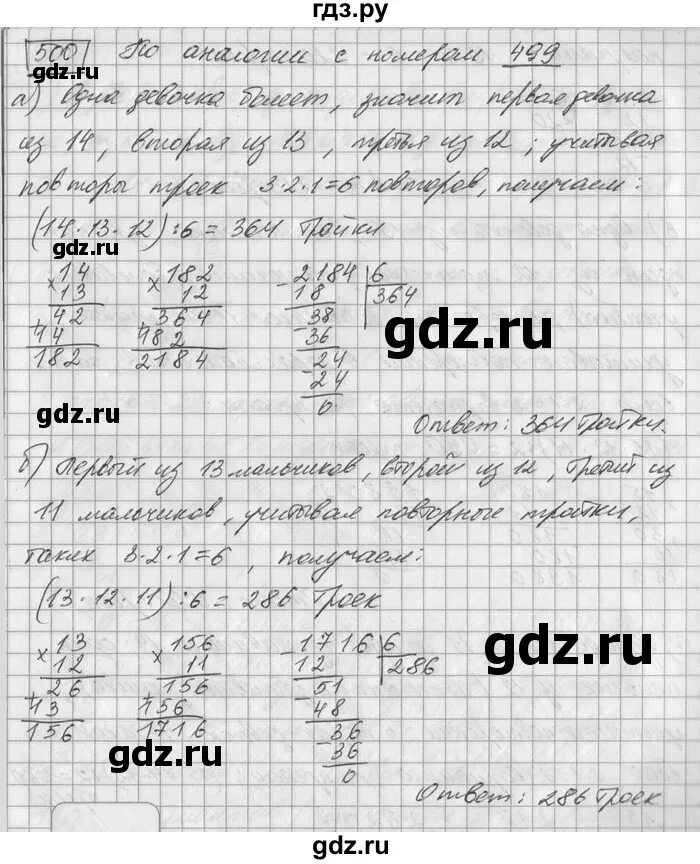 гдз.ру
500 По аналогии с номером 499
а) Одна девочка болеет, значит первая девочка
из 14, вторая из 13, третья из 12; учитывая
повторы троек 3·2·1=6 повторов, получаем:
(14·13·12):6=364 тройки
gdz.ru
×14 ×182 -2184 | 6
13 12 18 364
42 364 38
+14 +182 -36
182 2184 24
-24
0
gdz.ru
gdz.ru
Ответ: 364 тройки.
б) Первый из 13 мальчиков, второй из 12, третий из
11 мальчиков, учитывая повторные тройки,
таких 3·2·1=6, получаем:
(13·12·11):6=286 троек
gdz.ru
×13 ×156 -1716 | 6
12 11 12 286
26 156 51
+13 +156 -48
156 1716 36
-36
0
gdz.ru
gdz.ru
Ответ: 286 троек
gdz.ru